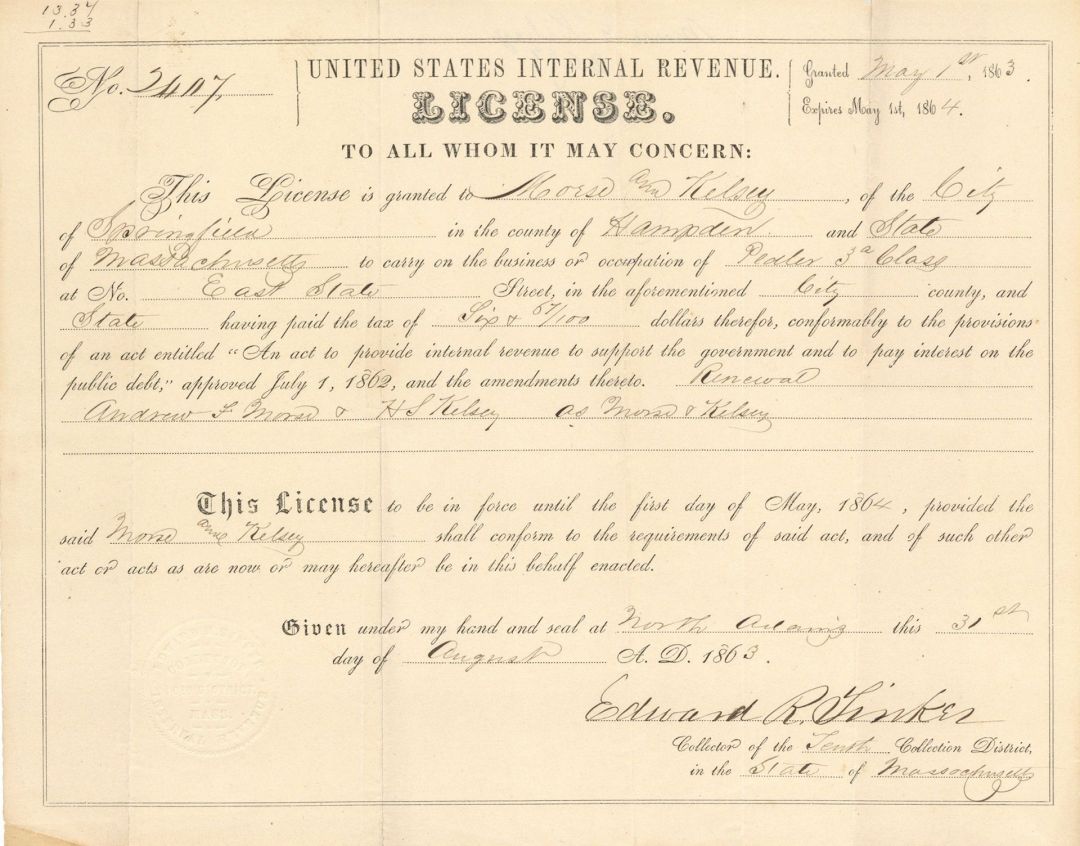 13.34
1.33
No. 2407
UNITED STATES INTERNAL REVENUE.
LICENSE.
Granted May 1st, 1863.
Expires May 1st, 1864.
TO ALL WHOM IT MAY CONCERN:
This License is granted to Morse and Kelsey, of the City
of Springfield in the county of Hampden and State
of Massachusetts to carry on the business or occupation of Pedler 3d Class
at No. East State Street, in the aforementioned City county, and
State having paid the tax of Six & 67/100 dollars therefor, conformably to the provisions
of an act entitled "An act to provide internal revenue to support the government and to pay interest on the
public debt," approved July 1, 1862, and the amendments thereto. Renewal
Andrew F Morse & H S Kelsey as Morse & Kelsey
This License to be in force until the first day of May, 1864, provided the
said Morse and Kelsey shall conform to the requirements of said act, and of such other
act or acts as are now or may hereafter be in this behalf enacted.
Given under my hand and seal at North Adams this 31st
day of August A. D. 1863.
Edward R. Tinker
Collector of the Tenth Collection District,
in the State of Massachusetts